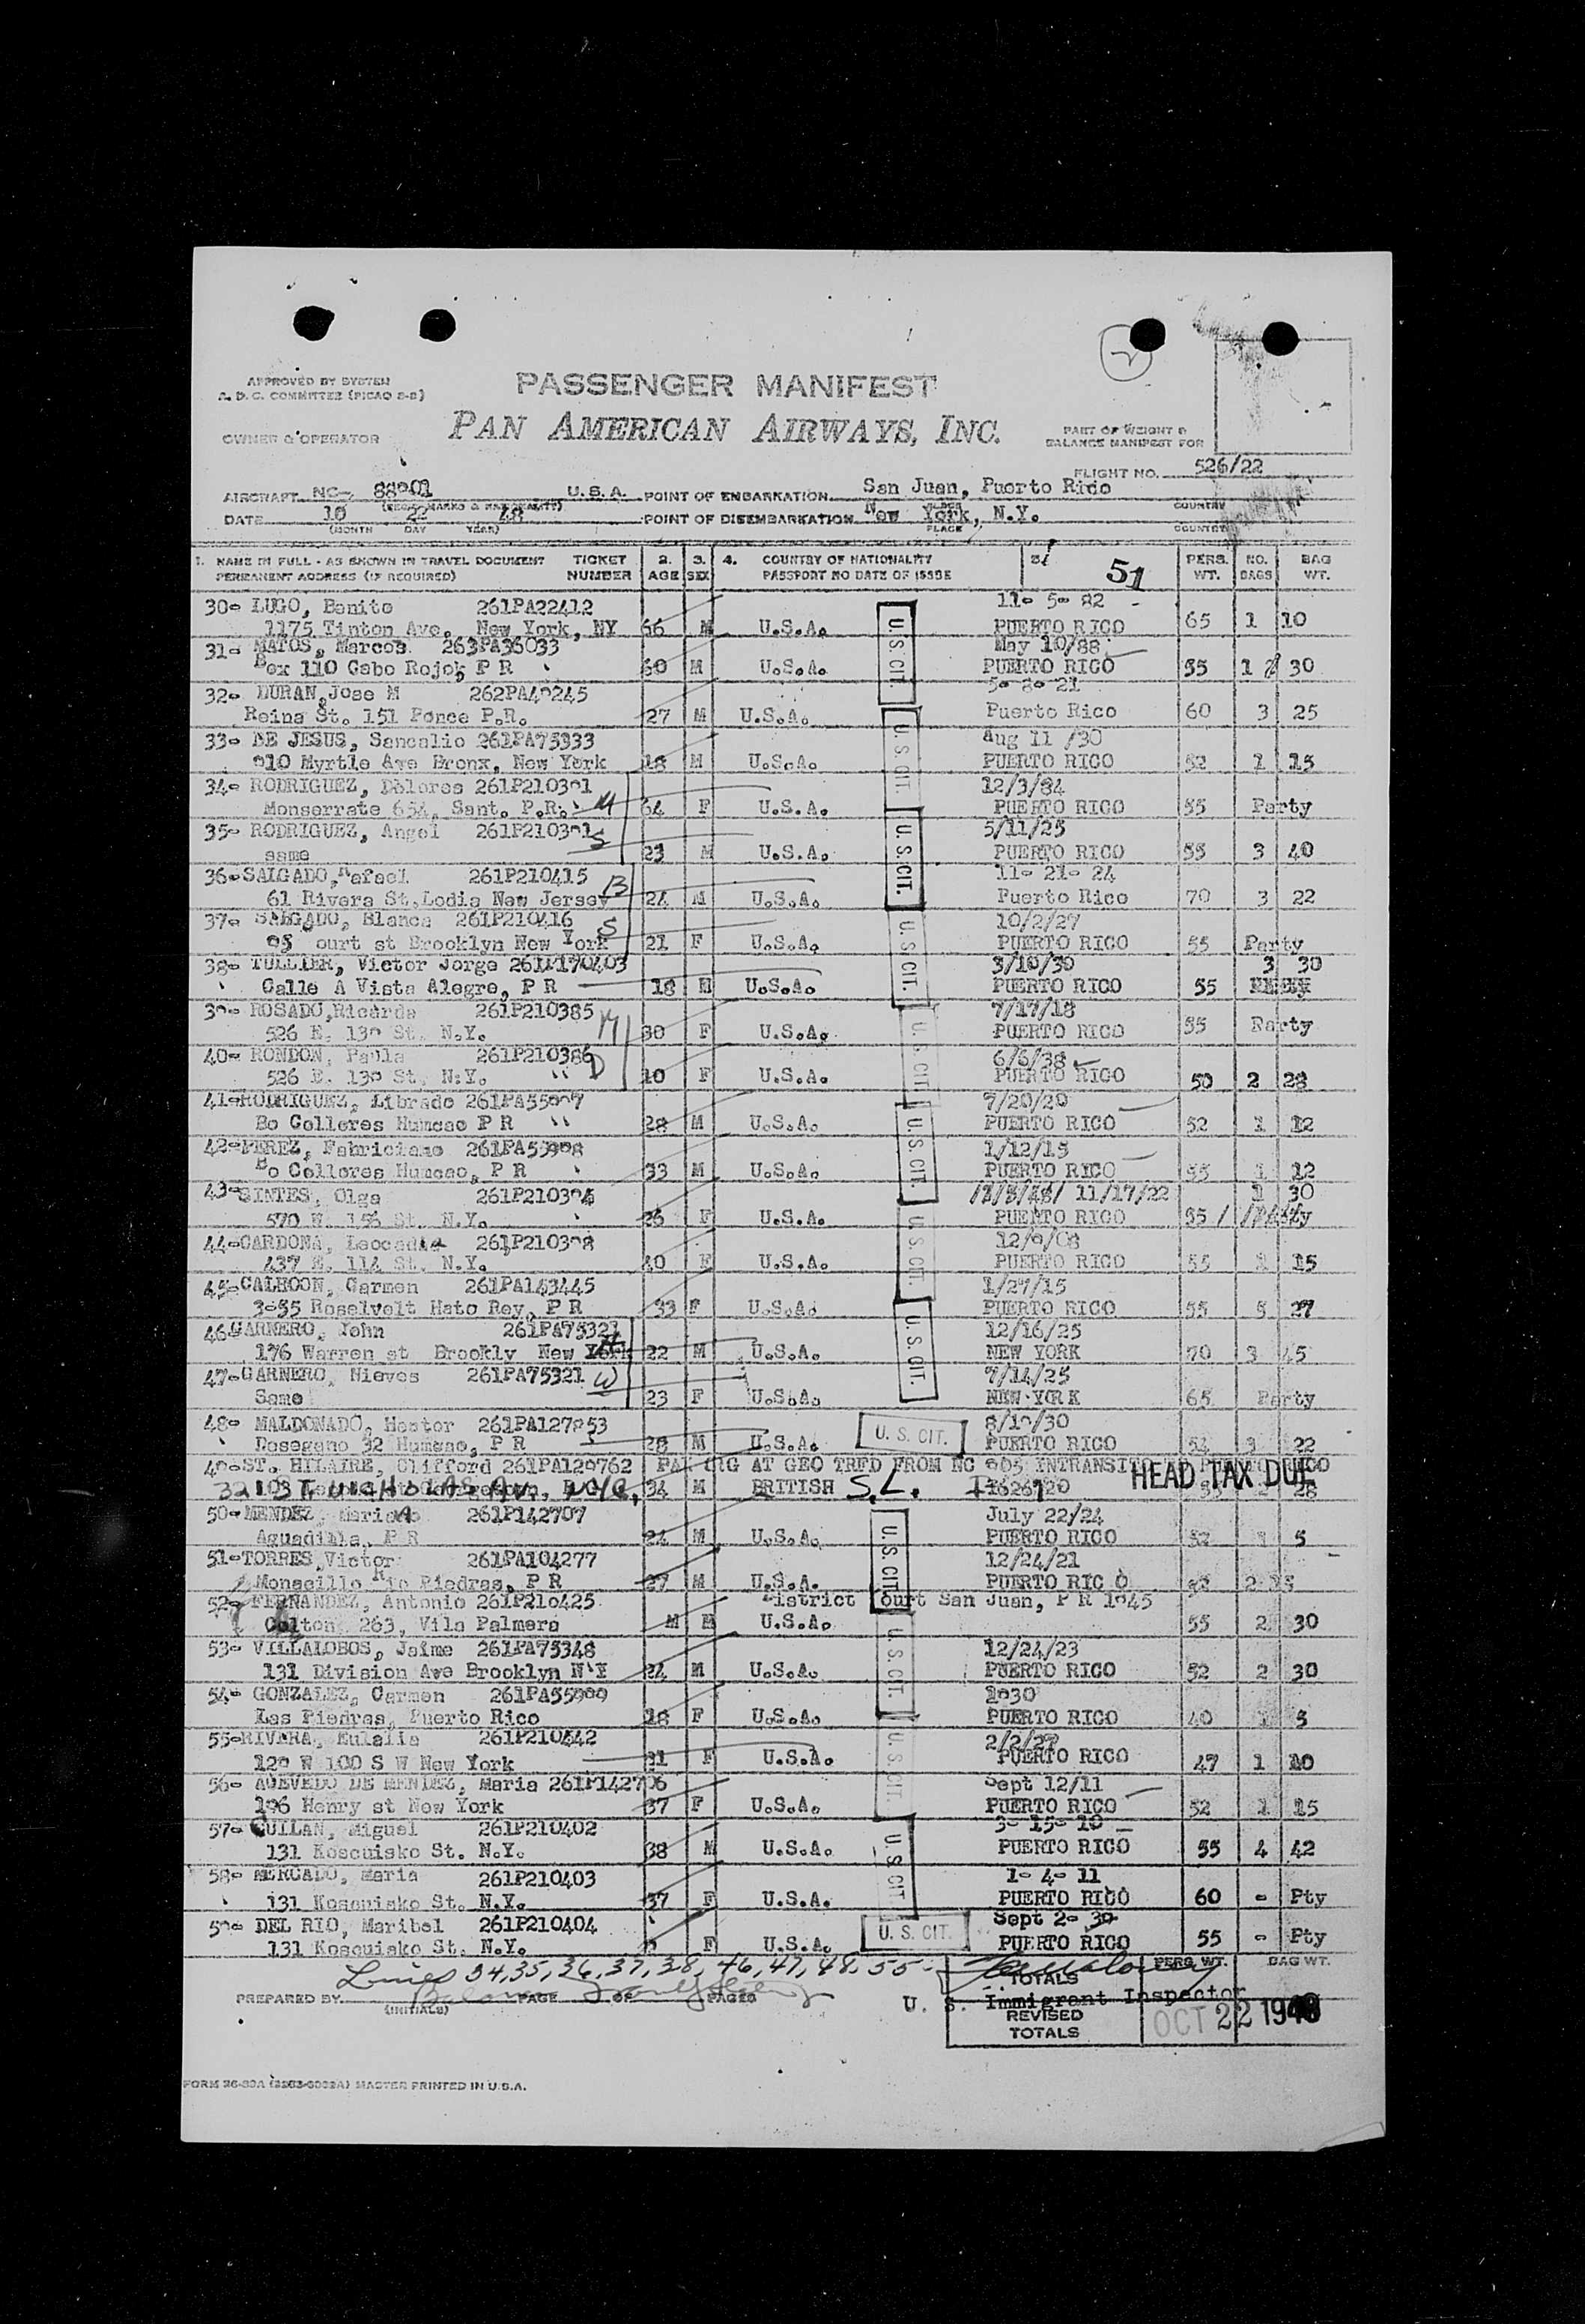 APPROVED BY SYSTEM
A. D. C. COMMITTEE (PICAO 8-8)
PASSENGER MANIFEST
OWNER & OPERATOR
PAN AMERICAN AIRWAYS, INC.
PART OF WEIGHT &
BALANCE MANIFEST FOR
FLIGHT NO. 526/22
AIRCRAFT NC- U.S.A. POINT OF EMBARKATION San Juan, Puerto Rico
COUNTRY
DATE 10 22 48 POINT OF DISEMBARKATION New York, N.Y.
(MONTH DAY YEAR) PLACE COUNTRY
1. NAME IN FULL - AS SHOWN IN TRAVEL DOCUMENT TICKET 2. 3. 4. COUNTRY OF NATIONALITY 51 PERS. NO. BAG
PERMANENT ADDRESS (IF REQUIRED) NUMBER AGE SEX PASSPORT NO DATE OF ISSUE WT. BAGS WT.
30- LUGO, Benito 261PA22412 11- 5- 82
1175 Tinton Ave. New York, NY 66 M U.S.A. U.S. CIT. PUERTO RICO 65 1 10
31- MATOS, Marcos 263PA36033 May 10/88
Box 110 Cabo Rojo, P R 60 M U.S.A. PUERTO RICO 55 1 30
32- DURAN, Jose M 262PA40245 5- 8- 21
Reina St. 151 Ponce P.R. 27 M U.S.A. Puerto Rico 60 3 25
33- DE JESUS, Sancalio 261PA75333 Aug 11 /30
910 Myrtle Ave Bronx, New York 18 M U.S.A. U.S. CIT. PUERTO RICO 52 1 15
34- RODRIGUEZ, Dolores 261P210391 12/3/84
Monserrate 654, Sant. P.R. M 64 F U.S.A. PUERTO RICO 55 Party
35- RODRIGUEZ, Angel 261P210391 S 5/11/25
same 23 M U.S.A. U.S. CIT. PUERTO RICO 55 3 40
36- SALGADO, Rafael 261P210415 B 11- 21- 24
61 Rivera St. Lodia New Jersey 24 M U.S.A. Puerto Rico 70 3 22
37- SALGADO, Blanca 261P210416 S 10/2/27
95 ourt st Brooklyn New York 21 F U.S.A. U.S. CIT. PUERTO RICO 55 Party
38- TULLIER, Victor Jorge 261P170403 3/10/30 3 30
Calle A Vista Alegre, P R 18 M U.S.A. PUERTO RICO 55
39- ROSADO, Ricarda 261P210385 M 7/17/18
526 E. 139 St. N.Y. 30 F U.S.A. U.S. CIT. PUERTO RICO 55 Party
40- RONDON, Paula 261P210386 D 6/6/38
526 E. 139 St. N.Y. 10 F U.S.A. PUERTO RICO 50 2 28
41- RODRIGUEZ, Librado 261PA55907 7/20/20
Bo Collores Humcao P R 28 M U.S.A. U.S. CIT. PUERTO RICO 52 1 12
42- PEREZ, Fabriciano 261PA55908 1/12/15
Bo Collores Humcao, P R 33 M U.S.A. PUERTO RICO 55 1 12
43- SINTES, Olga 11/17/22 1 30
570 W. 156 St. N.Y. 26 F U.S.A. U.S. CIT. PUERTO RICO 55
44- CARDONA, Leocadia 261P210398 12/9/08
437 E. 114 St. N.Y. 40 F U.S.A. PUERTO RICO 55 1 15
45- CALHOON, Carmen 261PA143445 1/27/15
Roselvolt Hato Rey, P R 33 F U.S.A. PUERTO RICO 55 5 27
46- GARNERO, John 261PA75321 H 12/16/25
176 Warren st Brookly New York 22 M U.S.A. U.S. CIT. NEW YORK 70 3 45
47- GARNERO, Nieves 261PA75321 W 7/14/25
Same 23 F U.S.A. NEW YORK 65 Party
48- MALDONADO, Hector 261PA127853 8/10/30
32 Humcao, P R 28 M U.S.A. U. S. CIT. PUERTO RICO 52 3 22
49- ST. HILAIRE, Clifford 261PA120762 ORG AT GEO TRFD FROM NC INTRANSIT PUERTO RICO
34 M BRITISH S.L. HEAD TAX DUE 28
50- MENDEZ, Mariano 261P142707 July 22/24
Aguadilla, P R 24 M U.S.A. U.S. CIT. PUERTO RICO 52 1 5
51- TORRES, Victor 261PA104277 12/24/21
Monacillo Rio Piedras, P R 27 M U.S.A. PUERTO RIC O 52 2
52- FERNANDEZ, Antonio 261P210425 District ourt San Juan, P R 1945
Colton 263, Vila Palmera M M U.S.A. 55 2 30
53- VILLALOBOS, Jaime 261PA75348 12/24/23
131 Division Ave Brooklyn N Y 24 M U.S.A. U.S. CIT. PUERTO RICO 52 2 30
54- GONZALEZ, Carmen 261PA55909 1930
Las Piedras, Puerto Rico 18 F U.S.A. PUERTO RICO 40 1 5
55- RIVERA, Eulalia 261P210442 2/2/27
129 W 100 S W New York 21 F U.S.A. U.S. CIT. PUERTO RICO 47 1 10
56- ACEVEDO DE MENDEZ, Maria 261P142706 Sept 12/11
196 Henry st New York 37 F U.S.A. PUERTO RICO 52 1 15
57- GUILAN, Miguel 261P210402 3- 15- 10
131 Koscuisko St. N.Y. 38 M U.S.A. U.S. CIT. PUERTO RICO 55 4 42
58- MERCADO, Maria 261P210403 1- 4- 11
131 Koscuisko St. N.Y. 37 F U.S.A. PUERTO RICO 60 - Pty
59- DEL RIO, Maribel 261P210404 Sept 2- 39
131 Koscuisko St. N.Y. F U.S.A. U. S. CIT. PUERTO RICO 55 - Pty
Lines 34, 35, 36, 37, 38, 46, 47, 48, 55 TOTALS PERS. WT. BAG WT.
PREPARED BY (INITIALS) PAGE OF PAGES
U. S. Immigrant Inspector
REVISED
TOTALS OCT 22 1948
FORM 36-80A MASTER PRINTED IN U.S.A.